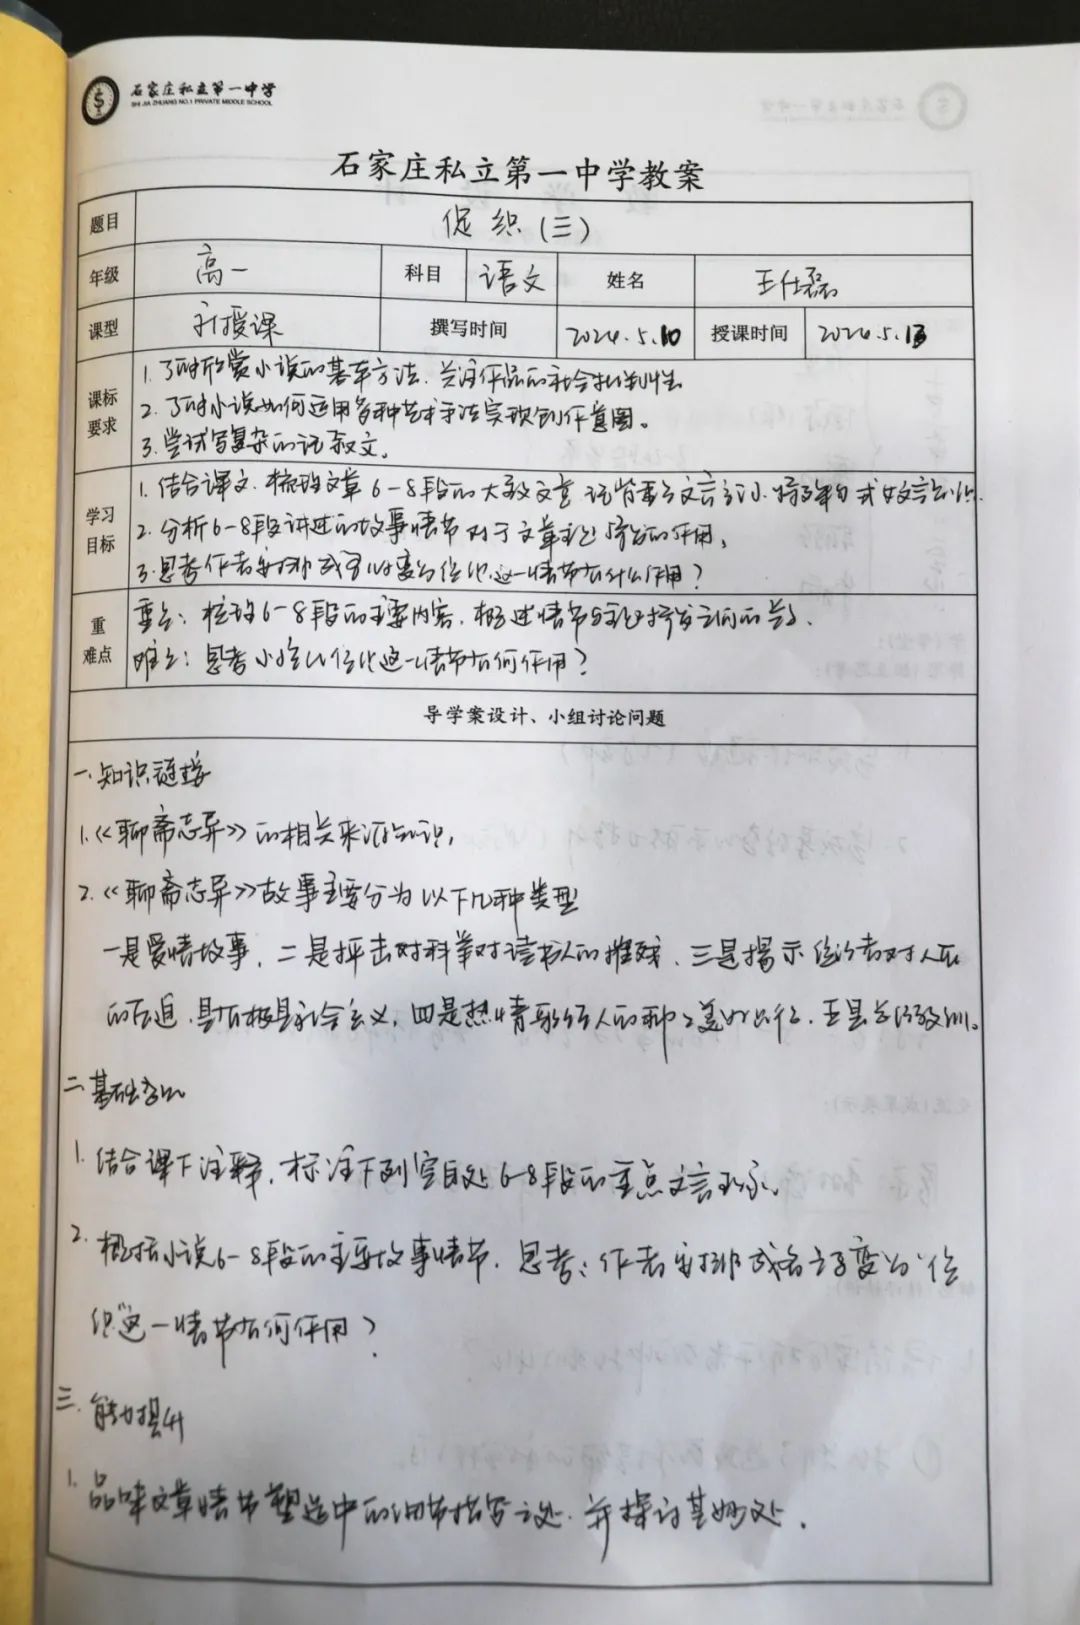 石家庄私立第一中学
SHI JIA ZHUANG NO.1 PRIVATE MIDDLE SCHOOL
石家庄私立第一中学教案
题目 促织(三)
年级 高一 科目 语文 姓名 王仕磊
课型 新授课 撰写时间 2024.5.10 授课时间 2024.5.13
课标要求
1.了解欣赏小说的基本方法.关注作品的社会批判性
2.了解小说如何运用多种艺术手法实现创作意图。
3.尝试写复杂的记叙文。
学习目标
1.结合课文.梳理文章6-8段的大致文意
2.分析6-8段讲述的故事情节对于文章主旨 的作用。
3.思考作者安排成名 变为促织这一情节有什么作用?
重难点
重点:梳理6-8段的主要内容.概述情节与主旨 之间的关系.
难点:思考 化这一情节有何作用?
导学案设计、小组讨论问题
一.知识链接
1.《聊斋志异》的相关来源知识,
2.《聊斋志异》故事主要分为以下几种类型
一是爱情故事.二是抨击对科举对读书人的摧残.三是揭示统治者对人民
的压迫.具有极具社会意义,四是热情歌颂人的种种美好品行.五是总结教训。
二.基础
1.结合课下注释.标注下列空白处6-8段的重点文言知识。
2.概括小说6-8段的主要故事情节.思考:作者安排成名之子变为"促
织"这一情节有何作用?
三.能力提升
1.品味文章情节塑造中的细节描写之处.并探讨其妙处.